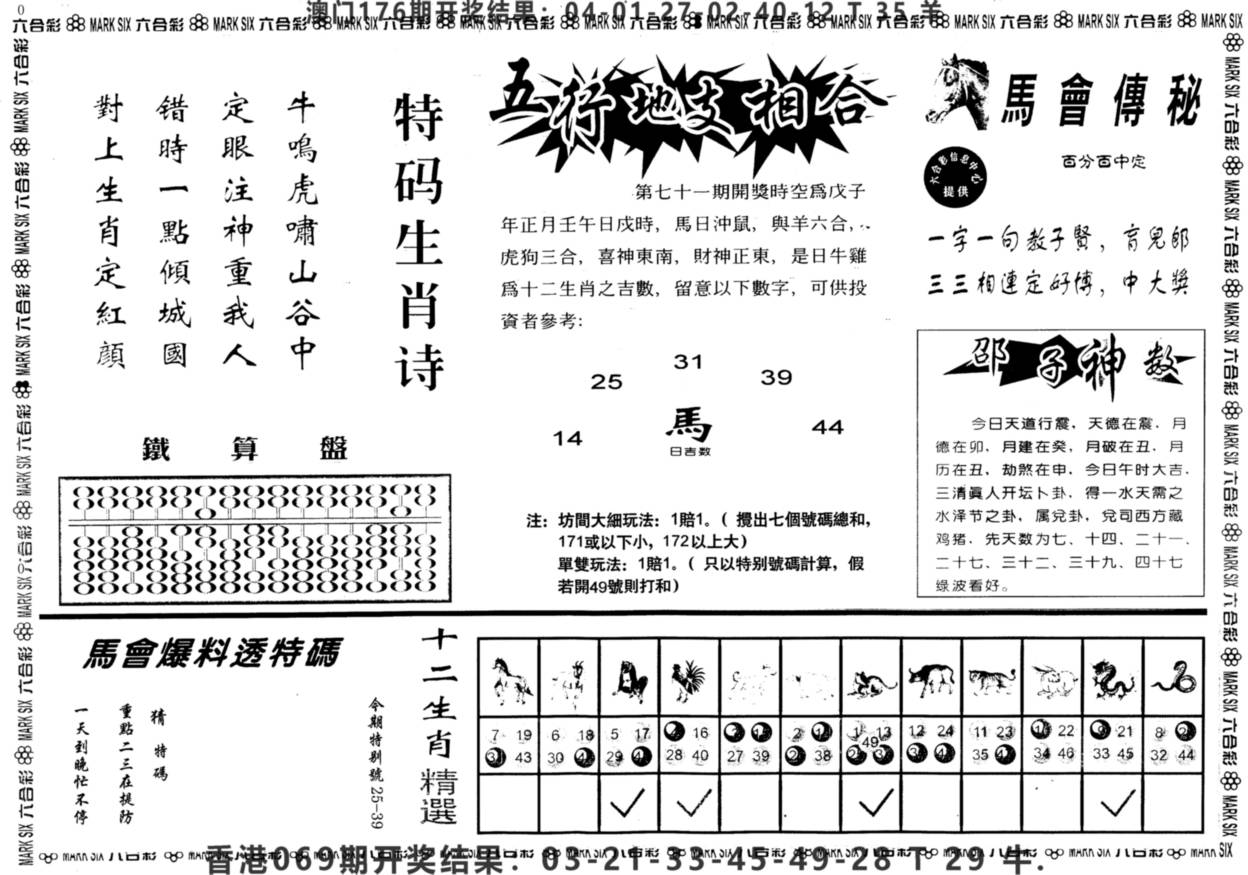 澳门176期开奖结果：04-01-27-02-40-12 T 35 羊
六合彩 MARK SIX 六合彩 MARK SIX 六合彩 MARK SIX 六合彩 MARK SIX
特码生肖诗
牛鳴虎嘯山谷中
定眼注神重我人
錯時一點傾城國
對上生肖定紅顏
鐵算盤
五行地支相合
第七十一期開獎時空爲戊子
年正月壬午日戌時，馬日沖鼠，與羊六合，
虎狗三合，喜神東南，財神正東，是日牛雞
爲十二生肖之吉數，留意以下數字，可供投
資者參考：
31
25 39
14 44
馬
日吉数
注：坊間大細玩法：1賠1。（ 攪出七個號碼總和，
171或以下小，172以上大）
單雙玩法：1賠1。（ 只以特别號碼計算，假
若開49號則打和）
馬會傳秘
六合彩信息中心
提供
百分百中定
一字一句教子賢，育兒郎
三三相連定好博，中大獎
邵子神数
今日天道行震，天德在震，月
德在卯，月建在癸，月破在丑，月
历在丑，劫煞在申，今日午时大吉，
三清眞人开坛卜卦，得一水天需之
水泽节之卦，属兌卦，兌司西方藏
鸡猪，先天数为七、十四、二十一、
二十七、三十二、三十九、四十七
绿波看好。
馬會爆料透特碼
猜特碼
重點二三在提防
一天到晚忙不停
今期特别號25-39
十二生肖精選
7 19 6 18 5 17 4 16 13 12 24 11 23 22 21 8
43 30 29 28 40 27 39 38 49 35 34 46 33 45 32 44
香港069期开奖结果：03-21-33-45-49-28 T 29 牛.